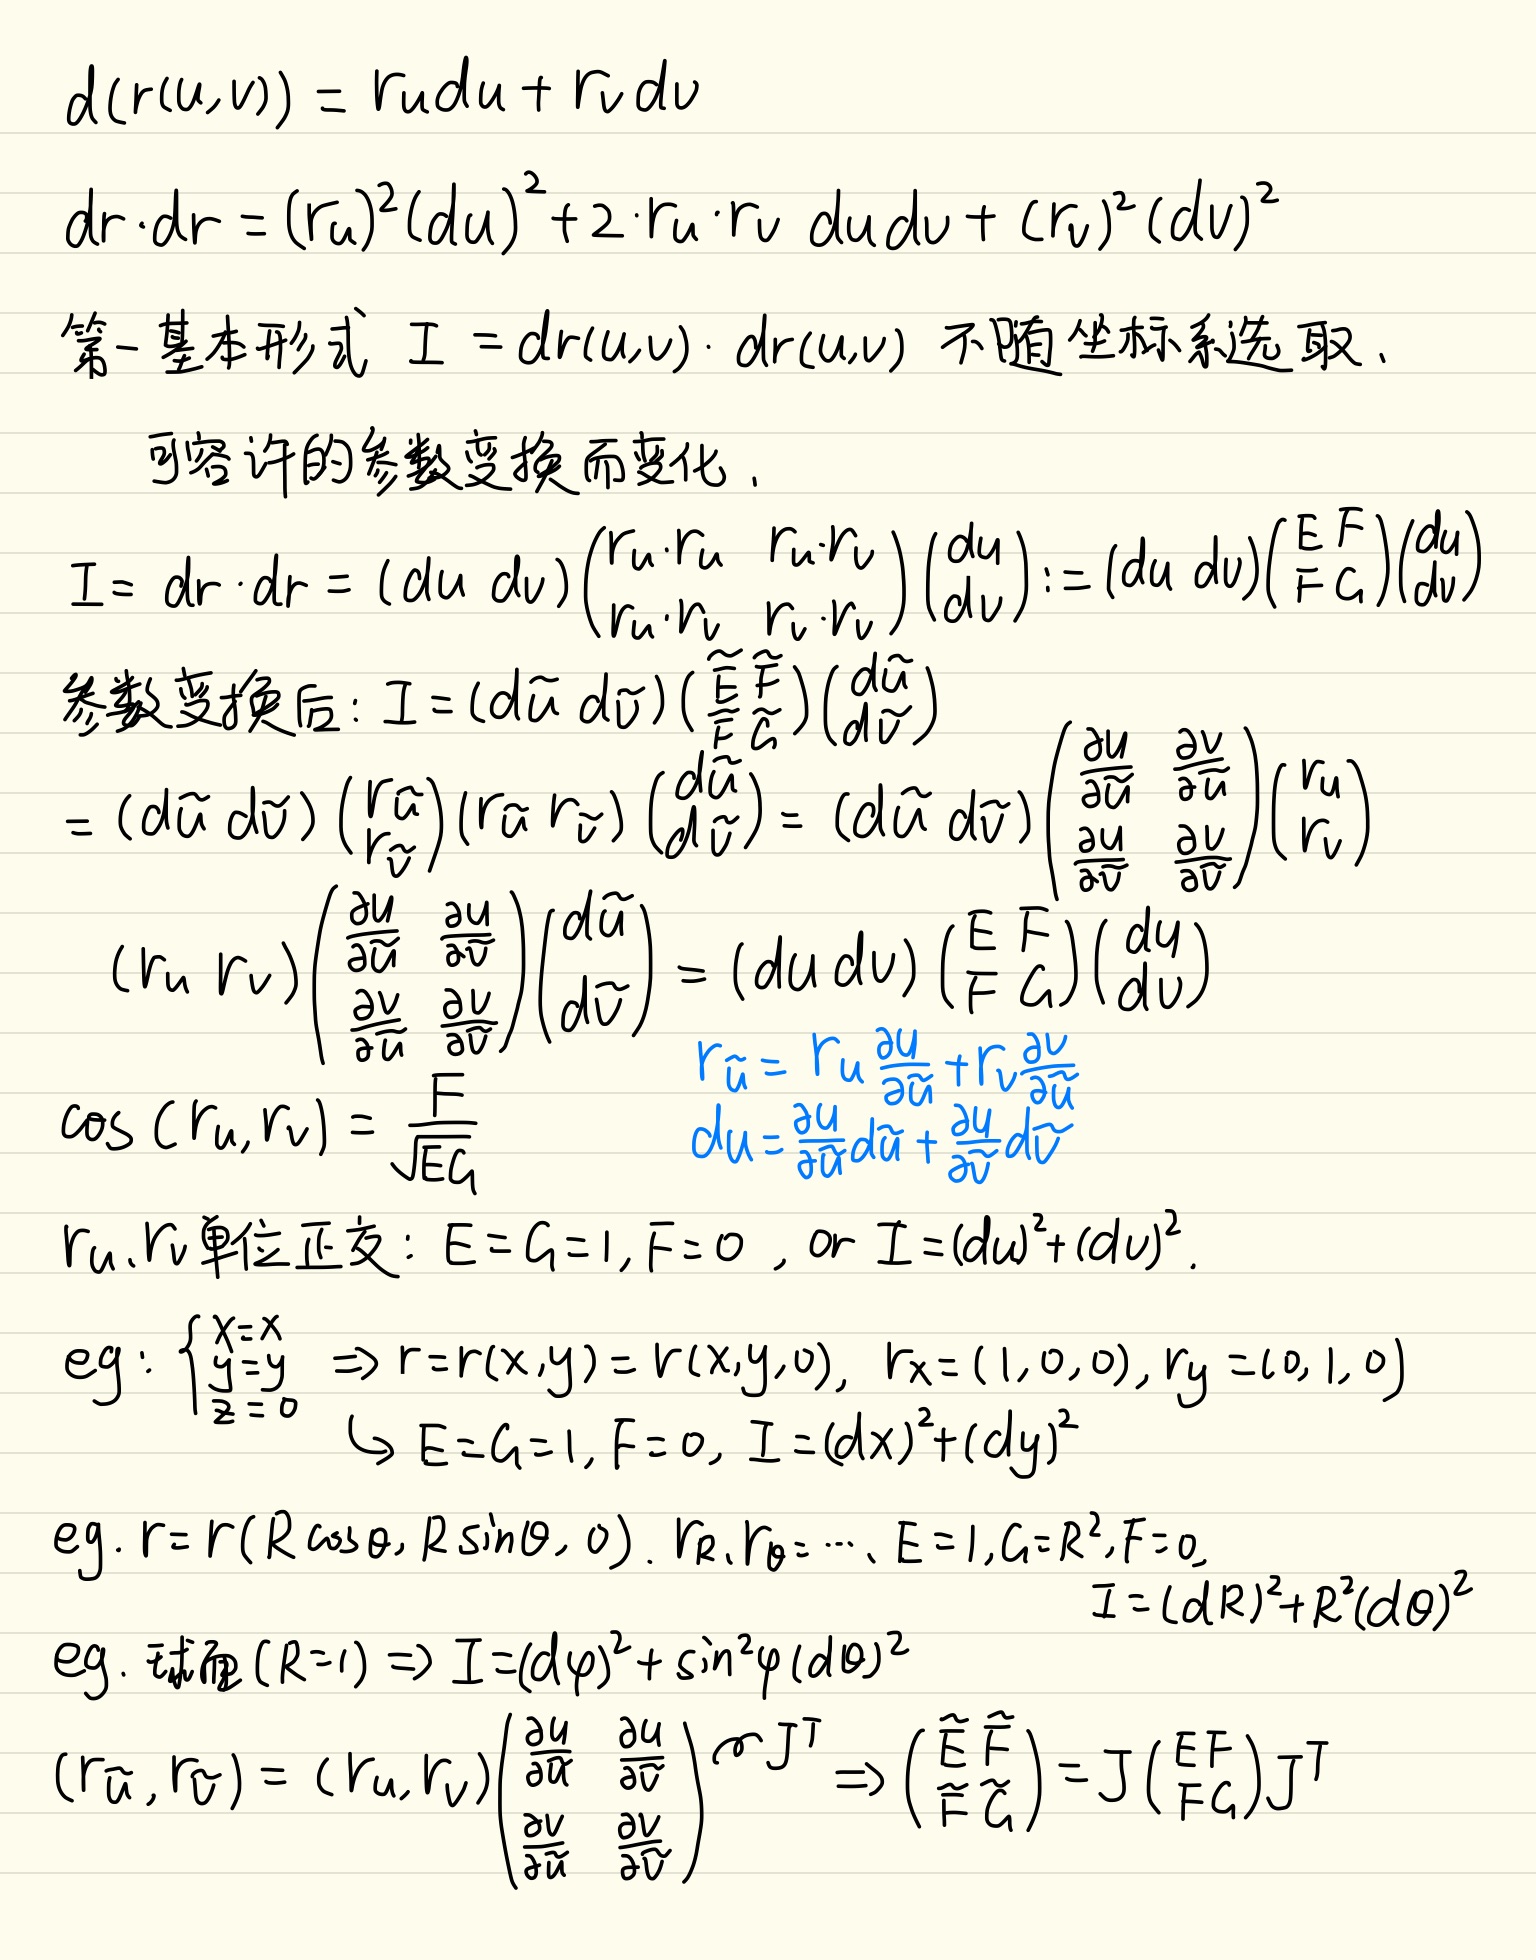 d(r(u,v)) = r_u du + r_v dv
dr·dr = (r_u)²(du)² + 2·r_u·r_v du dv + (r_v)²(dv)²
第一基本形式 I = dr(u,v)·dr(u,v) 不随坐标系选取、
可容许的参数变换而变化.
I = dr·dr = (du dv) \begin{pmatrix} r_u·r_u & r_u·r_v \\ r_u·r_v & r_v·r_v \end{pmatrix} \begin{pmatrix} du \\ dv \end{pmatrix} := (du dv) \begin{pmatrix} E & F \\ F & G \end{pmatrix} \begin{pmatrix} du \\ dv \end{pmatrix}
参数变换后: I = (dũ dṽ) \begin{pmatrix} Ẽ & F̃ \\ F̃ & G̃ \end{pmatrix} \begin{pmatrix} dũ \\ dṽ \end{pmatrix}
= (dũ dṽ) \begin{pmatrix} r_ũ \\ r_ṽ \end{pmatrix} (r_ũ r_ṽ) \begin{pmatrix} dũ \\ dṽ \end{pmatrix} = (dũ dṽ) \begin{pmatrix} ∂u/∂ũ & ∂v/∂ũ \\ ∂u/∂ṽ & ∂v/∂ṽ \end{pmatrix} \begin{pmatrix} r_u \\ r_v \end{pmatrix}
(r_u r_v) \begin{pmatrix} ∂u/∂ũ & ∂u/∂ṽ \\ ∂v/∂ũ & ∂v/∂ṽ \end{pmatrix} \begin{pmatrix} dũ \\ dṽ \end{pmatrix} = (du dv) \begin{pmatrix} E & F \\ F & G \end{pmatrix} \begin{pmatrix} du \\ dv \end{pmatrix}
r_ũ = r_u ∂u/∂ũ + r_v ∂v/∂ũ
du = ∂u/∂ũ dũ + ∂u/∂ṽ dṽ
cos(r_u, r_v) = F/√EG
r_u、r_v 单位正交: E=G=1, F=0, or I=(du)²+(dv)².
eg: \begin{cases} x=x \\ y=y \\ z=0 \end{cases} ⇒ r=r(x,y)=r(x,y,0), r_x=(1,0,0), r_y=(0,1,0)
↳ E=G=1, F=0, I=(dx)²+(dy)²
eg. r=r(Rcosθ, Rsinθ, 0). r_R、r_θ=…、E=1, G=R², F=0,
I=(dR)²+R²(dθ)²
eg. 球面(R=1) ⇒ I=(dφ)²+sin²φ(dθ)²
(r_ũ, r_ṽ) = (r_u, r_v) \begin{pmatrix} ∂u/∂ũ & ∂u/∂ṽ \\ ∂v/∂ũ & ∂v/∂ṽ \end{pmatrix} J^T ⇒ \begin{pmatrix} Ẽ & F̃ \\ F̃ & G̃ \end{pmatrix} = J \begin{pmatrix} E & F \\ F & G \end{pmatrix} J^T